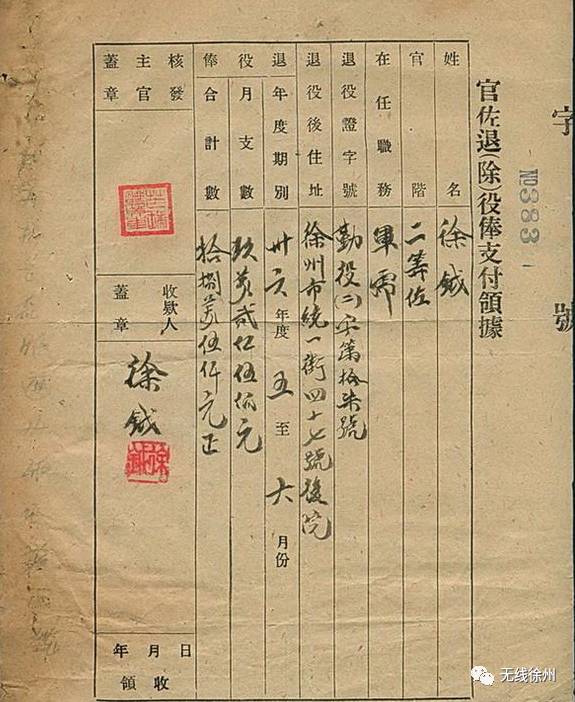 字 號
№383
官佐退(除)役俸支付領據
姓名 徐鉞
官階 二等佐
在任職務 軍需
退役證字號 勤役(二)字第拾柒號
退役後住址 徐州市統一街四十七號後院
退役俸
年度期別 卅六年度五至六月份
月支數 玖萬貳仟伍佰元
合計數 拾捌萬伍仟元正
核發主官蓋章
收欵人蓋章 徐鉞
徐鉞
年 月 日
領收
无线徐州